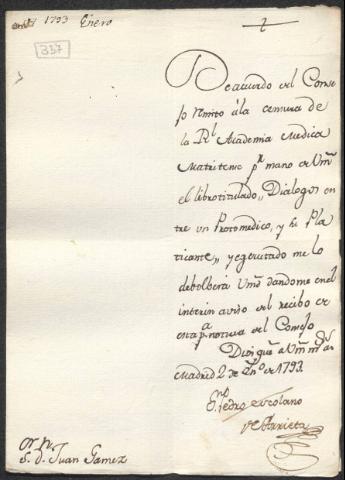 1793 Enero
2
337
De acuerdo del Conse
jo remito á la censura de
la Rl. Academia Medica
Matritense pr. mano de Vm
el libro titulado "Dialogos en
tre un Protomedico, y su Pla
ticante" y egecutado me lo
debolberá Vmd dandome en el
interin aviso del recibo de
esta pa. noticia del Consejo
Dios gue. a Vm. ms. as.
Madrid 2 de Eno. de 1793.
Dn. Pedro Escolano
de Arrieta
Sor. Dn. Juan Gamez